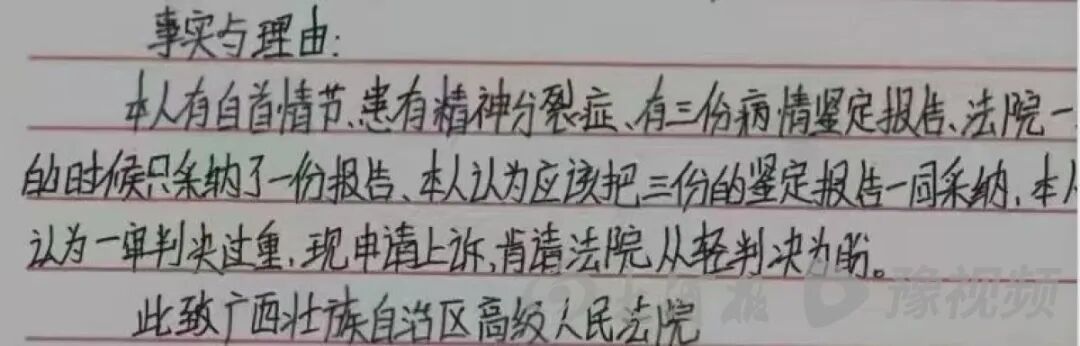 事实与理由:
本人有自首情节、患有精神分裂症、有三份病情鉴定报告、法院一
的时候只采纳了一份报告、本人认为应该把三份的鉴定报告一同采纳、本人
认为一审判决过重、现申请上诉、肯请法院从轻判决为盼。
此致广西壮族自治区高级人民法院
大河报 豫视频